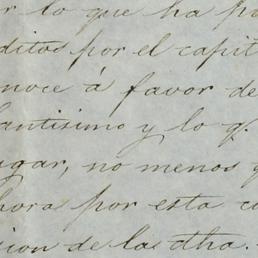 r lo que ha po
ditos por el capit
noce á favor de
antisimo y lo q.
gar, no menos q
hora por esta c
sion de las dha.